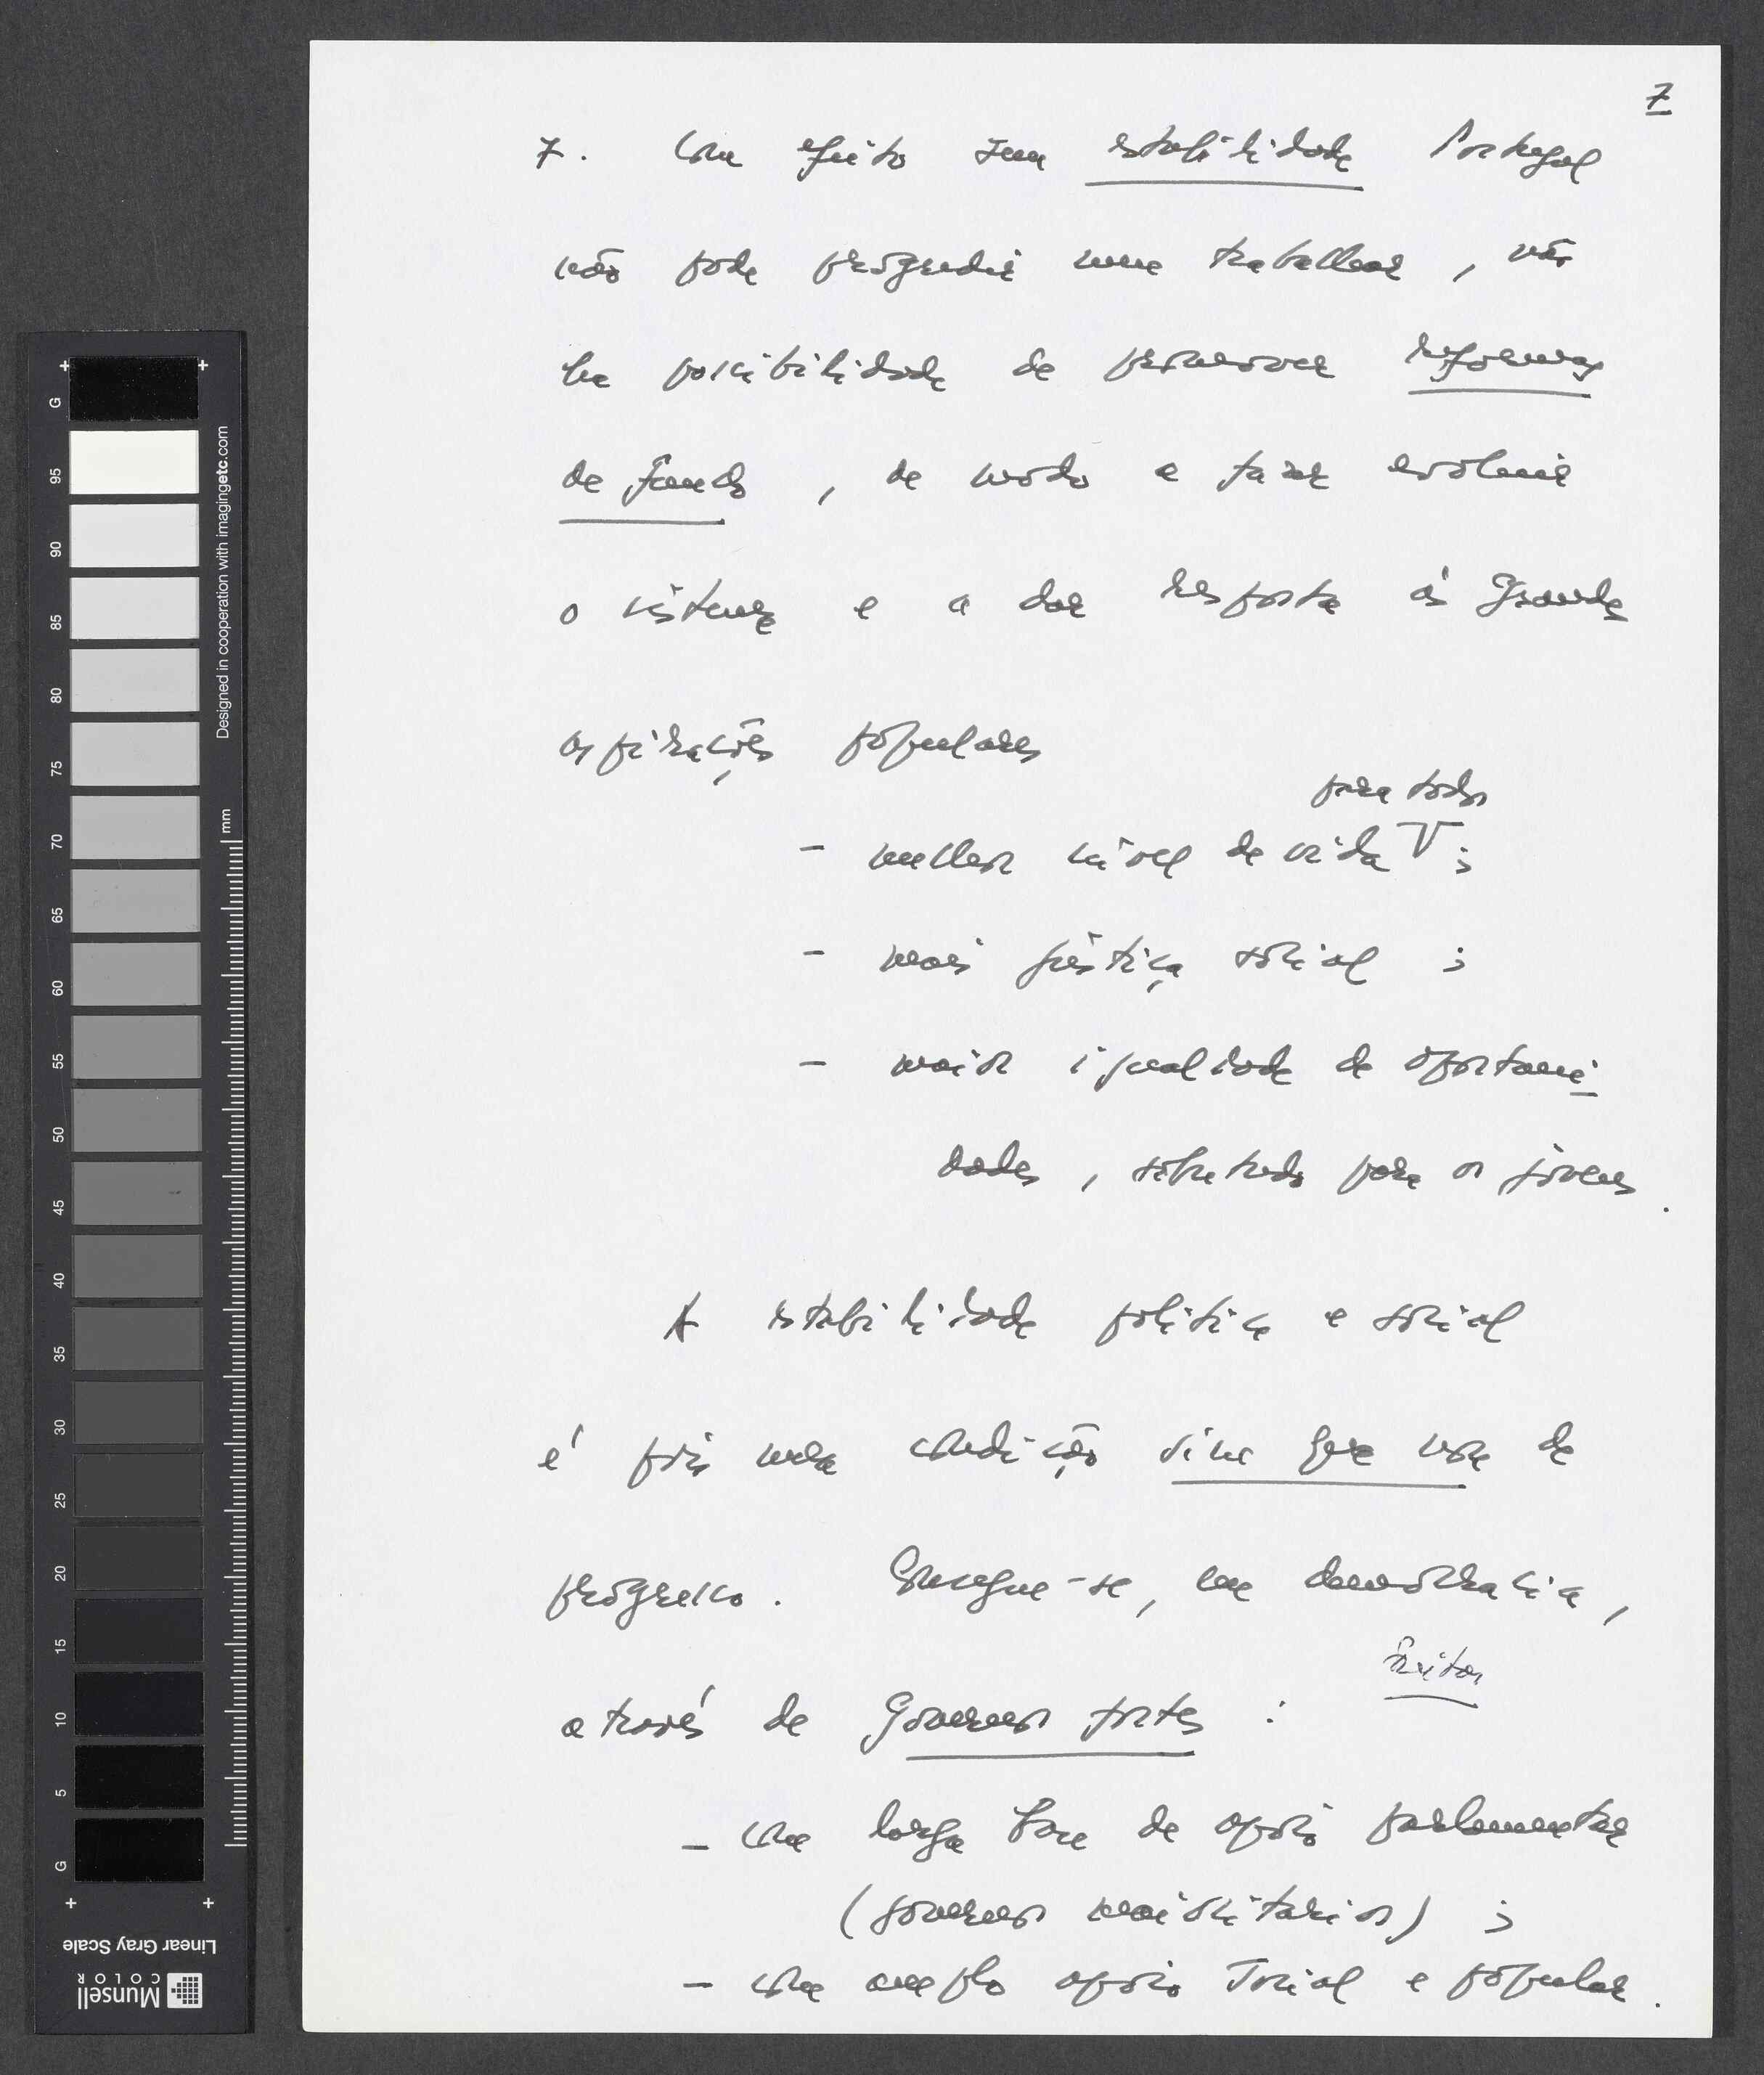 7
7. Com efeito sem estabilidade Portugal
não pode progredir nem trabalhar, não
há possibilidade de promover reformas
de fundo, de modo a fazer evoluir
o sistema e a dar resposta às grandes
aspirações populares
para todos
- melhor nível de vida V ;
- mais justiça social ;
- maior igualdade de oportuni
dades, sobretudo para os jovens.
A estabilidade política e social
é pois uma condição sine qua non de
progresso. Consegue-se, em democracia,
através de Governos fortes :
- com larga base de apoio parlamentar
(governos maioritários) ;
- com amplo apoio social e popular.
G
95
90
85
80
75
70
65
60
55
50
45
40
35
30
25
20
15
10
5
G
mm
Designed in cooperation with imagingetc.com
Linear Gray Scale
Munsell
COLOR